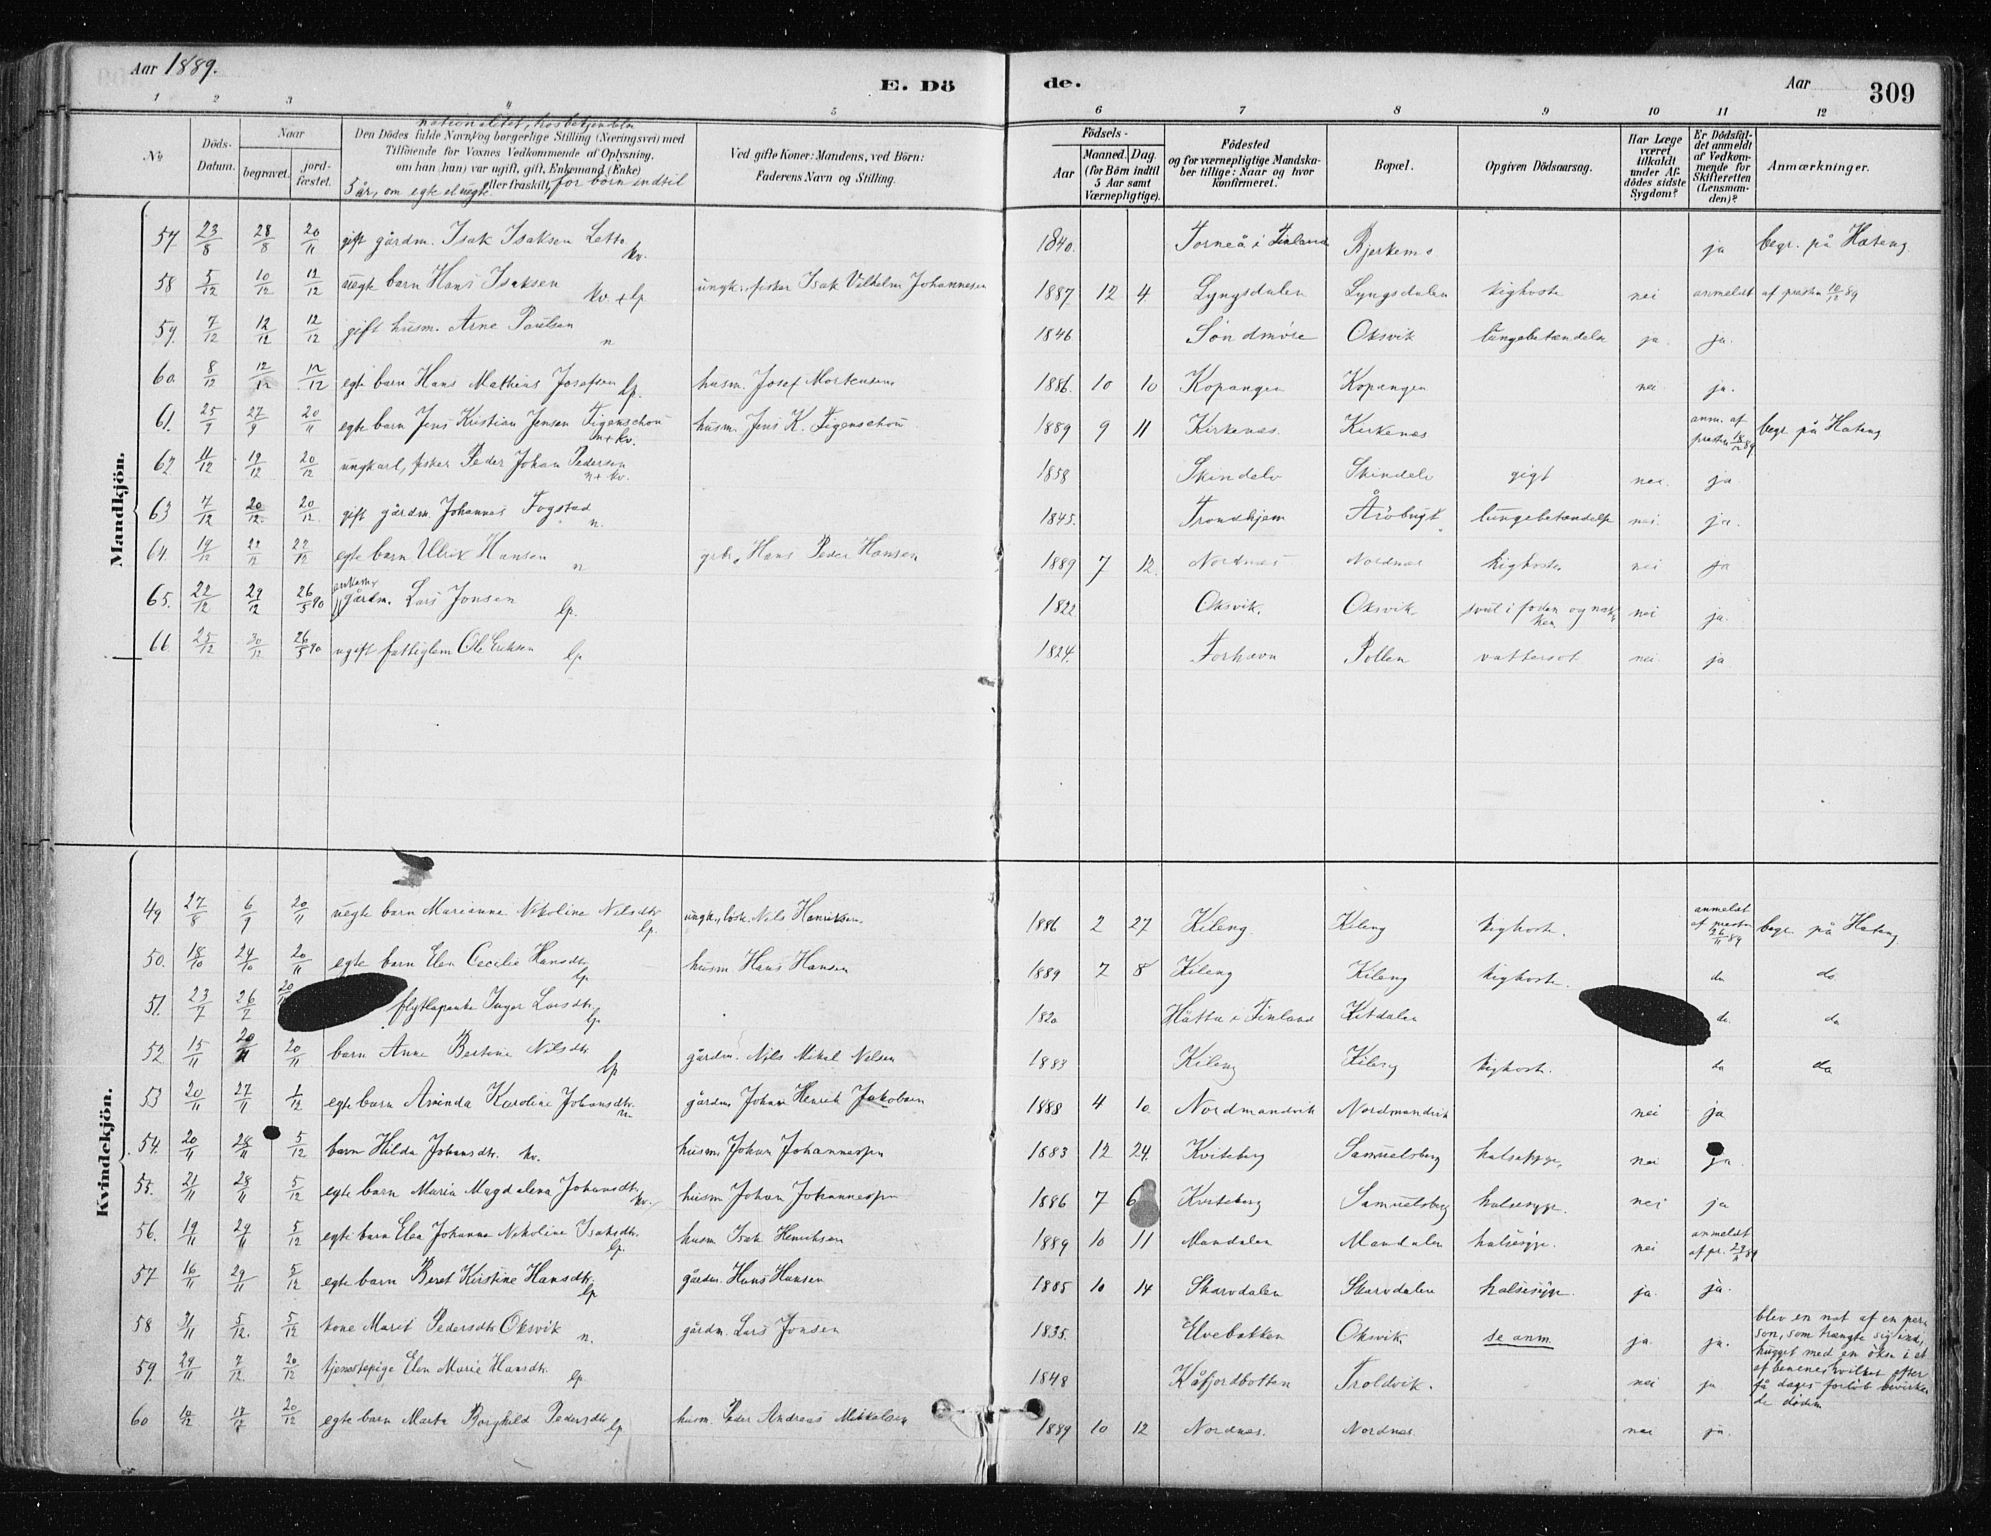 Aar 1889.
E. Dö de.
Aar
309
1 2 3 4 5 6 7 8 9 10 11 12
nationalitet, hos
Nr
Döds-Datum.
Naar
begravet.
jord-fæstet.
Den Dödes fulde Navn og borgerlige Stilling (Næringsvei) med
Tilföiende for Voxnes Vedkommende af Oplysning,
om han (hun) var ugift, gift, Enkemand (Enke)
eller fraskilt, for börn indtil
5 år, om egte el uegte.
Ved gifte Koner: Mandens, ved Börn:
Faderens Navn og Stilling.
Födsels-
Aar
Maaned. Dag.
(for Börn indtil
5 Aar samt
Værnepligtige).
Födested
og for værnepligtige Mandska-
ber tillige: Naar og hvor
konfirmeret.
Bopæl.
Opgiven Dödsaarsag.
Har Læge
været
tilkaldt
under Af-
dödes sidste
Sygdom?
Er Dödsfal-
det anmeldt
af Vedkom-
mende for
Skifteretten
(Lensman-
den)?
Anmærkninger.
Mandkjön.
57 23/8 28/8 20/11 gift gårdm. Isak Isaksen Letto kv. 1840. Torneå i Finland Bjerkemo ja begr. på Hateng
58 5/12 10/12 12/12 uegte barn Hans Isaksen kv. + lp ungk. fisker Isak Vilhelm Johannesen 1887 12 4 Lyngsdalen Lyngsdalen kighoste nei anmeldt af presten 12/12 89
59. 7/12 12/12 12/12 gift husm. Arne Paulsen n 1846 Söndmöre Oksvik lungebetændelse ja. ja.
60. 8/12 12/12 12/12 egte barn Hans Mathias Josefsen lp. husm. Josef Mortensen 1886. 10 10 Kopangen Kopangen nei ja.
61. 25/9 27/9 20/11 egte barn Jens Kristian Jensen Figenschou n + kv. husm. Jens K. Figenschou 1889 9 11 Kirkenæs. Kirkenæs anm. af presten 18/12 89 begr. på Hateng
62. 11/12 19/12 20/12 ungkarl, fisker Peder Johan Pedersen n + kv. 1858 Skindelv Skindelv gigt nei. ja
63 7/12 20/12. 20/12 gift gårdm. Johannes Fogstad n. 1845. Trondhjem Åröbugt lungebetændelse nei. ja.
64. 19/12 22/12 22/12 egte barn Ulrik Hansen n grbr. Hans Peder Hansen 1889 7 12. Nordnæs Nordnæs kighoste nei ja
65. 22/12 29/12 26/3 90 enkem. gårdm. Lars Jonsen lp. 1822 Oksvik. Oksvik svul i foden og nak-ken nei ja.
66. 25/12 30/12 26/3 90 ugift fattiglem Ole Eriksen lp 1824. Torhavn Pollen vattersot nei. ja
Kvindekjön.
49 27/8 6/9 20/11 uegte barn Marianne Nikoline Nilsdtr. lp. ungk., losk. Nils Henriksen. 1886 2 27 Kileng. Kileng kighoste. anmeldt af presten 26/11 89 begr. på Hateng
50. 18/10 24/10 20/11 egte barn Elen Cecilie Hansdtr. lp husm. Hans Hansen 1889 7 8 Kileng Kileng kighoste. do do
51. 23/7 26/7 20/11 flytlapenke Inger Larsdtr. lp 1820 Hätta i Finland Kitdalen do. do
52. 15/11 20/11 20/11 barn Anne Bertine Nilsdtr. lp gårdm. Nils Mikal Nilsen 1883 Kileng Kileng kighoste. do do
53 20/11 27/11 1/12 egte barn Avinda Karoline Johansdtr. n gårdm. Johan Henrik Jakobsen 1888 4 10. Nordmandvik Nordmandvik nei ja
54. 20/11 28/11 5/12 barn Hilda Johansdtr. kv. husm. Johan Johannessen 1883 12 24. Kviteberg Samuelsberg halssyge, nei ja.
55. 21/11 28/11 5/12 egte barn Maria Magdalena Johansdtr. kv. husm. Johan Johannessen 1886 7 6 Kviteberg Samuelsberg halsesyge. nei ja
56. 19/11 29/11 5/12 egte barn Elen Johanna Nikoline Isaksdtr. lp. husm. Isak Henriksen 1889 10 11 Mandalen Mandalen halsesyge. nei anmeldt af pr. 29/11 89
57 16/11 29/11 5/12 egte barn Beret Kirstine Hansdtr. lp gårdm. Hans Hansen 1885 10 14 Skarvdalen Skarvdalen halsesyge. ja. ja.
58 5/12. 5/12 kone Maret Pedersdtr. Oksvik n. gårdm. Lars Jonsen 1835. Elvebakken Oksvik se anm. ja. ja. blev en nat af en per-
son, som trængte sig ind,
hugget med en öks i et
af benene, hvilket efter
få dages forlöb bevirke-
de döden
59. 29/11 7/12. 20/12 tjenestepige Elen Marie Hansdtr. lp. 1848 Kåfjordbotten Troldvik. nei ja
60 10/12 12/12 20/12 egte barn Marta Borghild Pedersdtr. lp husm. Peder Andreas Mikkelsen 1889 10 12 Nordnæs. Nordnæs nei ja.